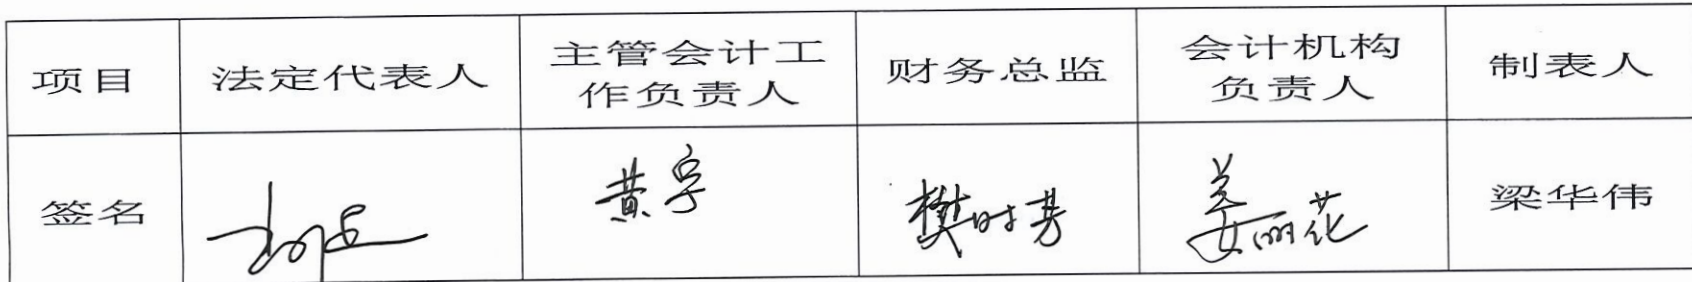 项目
法定代表人
主管会计工
作负责人
财务总监
会计机构
负责人
制表人
签名
黄宇
樊时芳
姜丽花
梁华伟